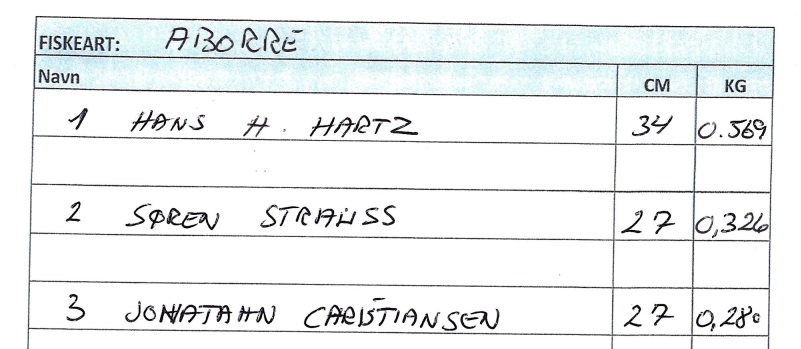 FISKEART: ABORRE
Navn CM KG
1 HANS H. HARTZ 34 0.569
2 SØREN STRAUSS 27 0,326
3 JONATAHN CHRISTIANSEN 27 0,280